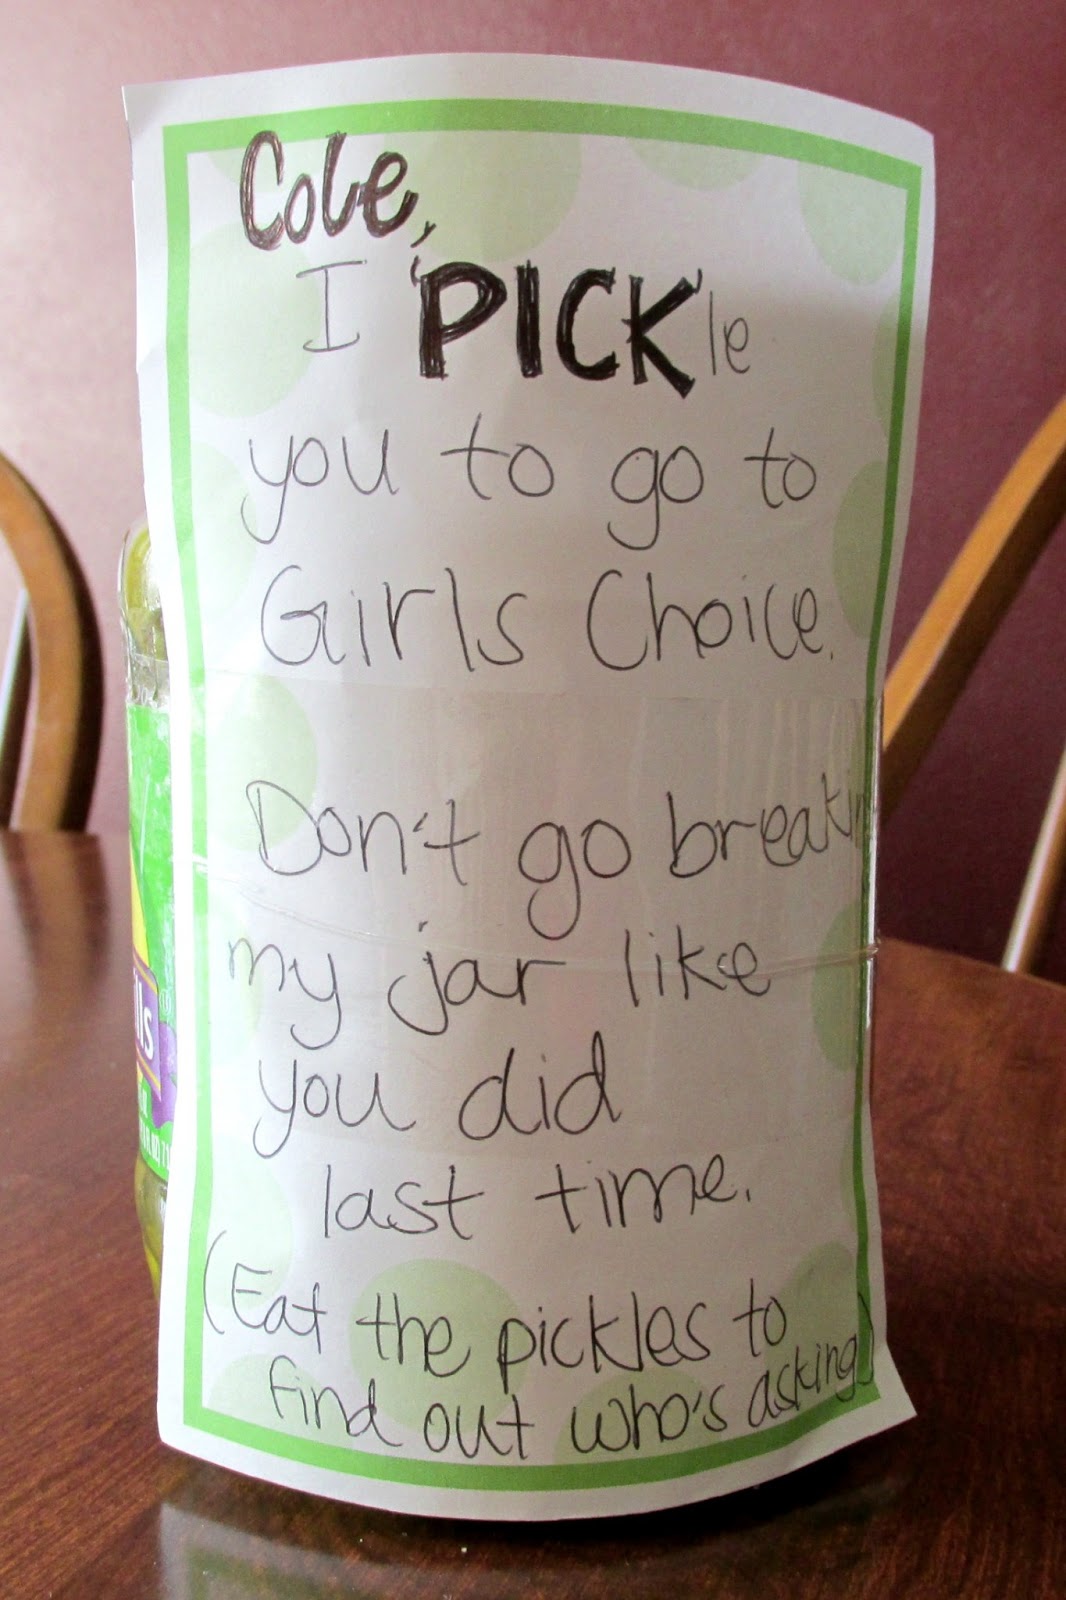 Cole,
I 'PICK'le
you to go to
Girls Choice.
Don't go breakin
my jar like
you did
last time.
(Eat the pickles to
find out who's asking)
lls